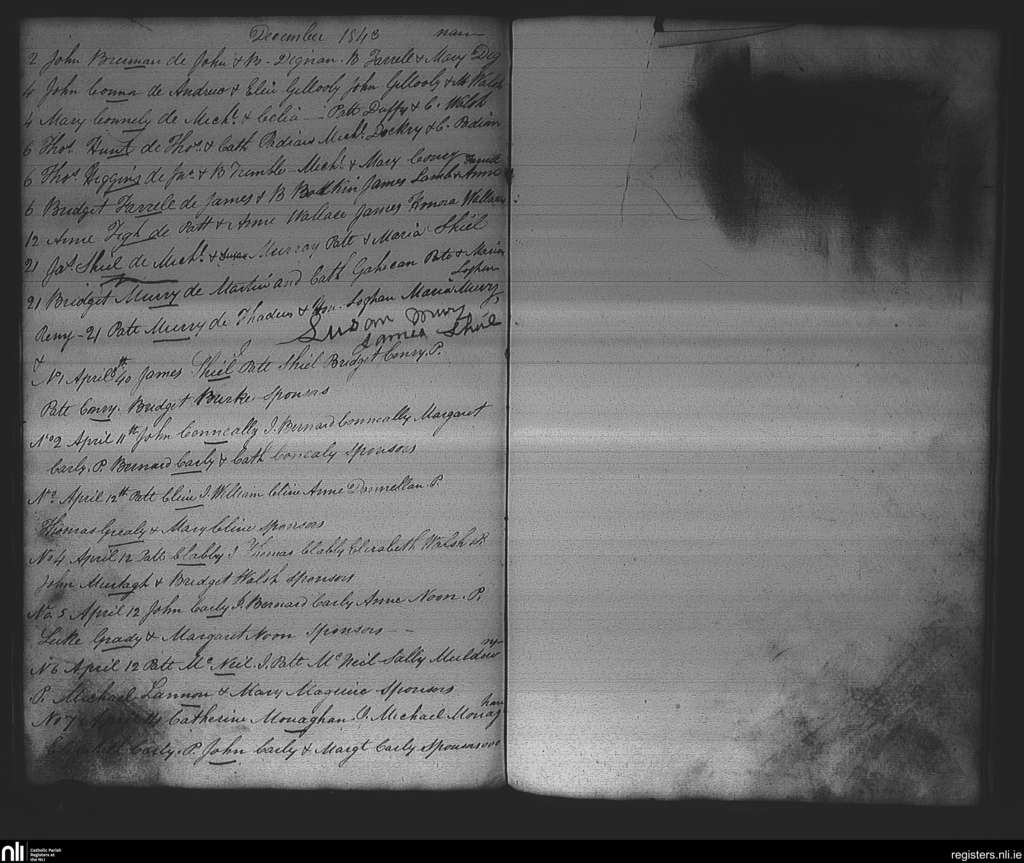 December 1843
nan
2 John Brennan de John & B. Dignan. B Farrell & Mary Dig
4 John Conna de Andrew & Elin Gillooly John Gillooly & M Walsh
4 Mary Connely de Mich! & Celia — Patt Duffy & C. Walsh
6 Thos. Hunt de Thos. & Cath Padian Mich! Lockry & C. Padian
6 Thos. Higgins de Jas. & B Trimble - Mich! & Mary Coney
Farrell
6 Bridget Farrell de James & B Bodkin James Lamb & Anne
12 Anne Figh de Patt & Anne Wallace James Honora Wallace
21 Jas. Shiel de Mich! & Susan Murray Patt & Maria Shiel
21 Bridget Murry de Martin and Cath Gahecan Pate & Maria
Loghan
Reny - 21 Pate Murry de Thadeus & Loghan Maria Murry
Susan Murry
James Shiel
&
No 1 April 8th 40 James Shiel J Patt Shiel Bridget Conry. P.
Patt Conry. Bridget Burke Sponsors
No 2 April 11th John Conneally J. Bernard Conneally Margaret
Carly. P. Bernard Carly & Cath Conealy Sponsors
No April 12th Patt Cline J. William Cline Anne Donnellan. P.
Thomas Grealy & Mary Cline Sponsors
No 4 April 12 Patt Clabby J Thomas Clabby Elizabeth Walsh P.
John Murtagh & Bridget Walsh Sponsors
No. 5 April 12 John Carly J. Bernard Carly Anne Noon. P.
Luke Grady & Margaret Noon Sponsors —
No 6 April 12 Patt Mc Neil J. Patt Mc Neil Sally Muldow
ny
P. Michael Lannon & Mary Maguire Sponsors
No 7 April 14 Catherine Monaghan J. Michael Monag
han
Carly. P. John Carly & Margt Carly Sponsors
nli Catholic Parish Registers at the NLI
registers.nli.ie